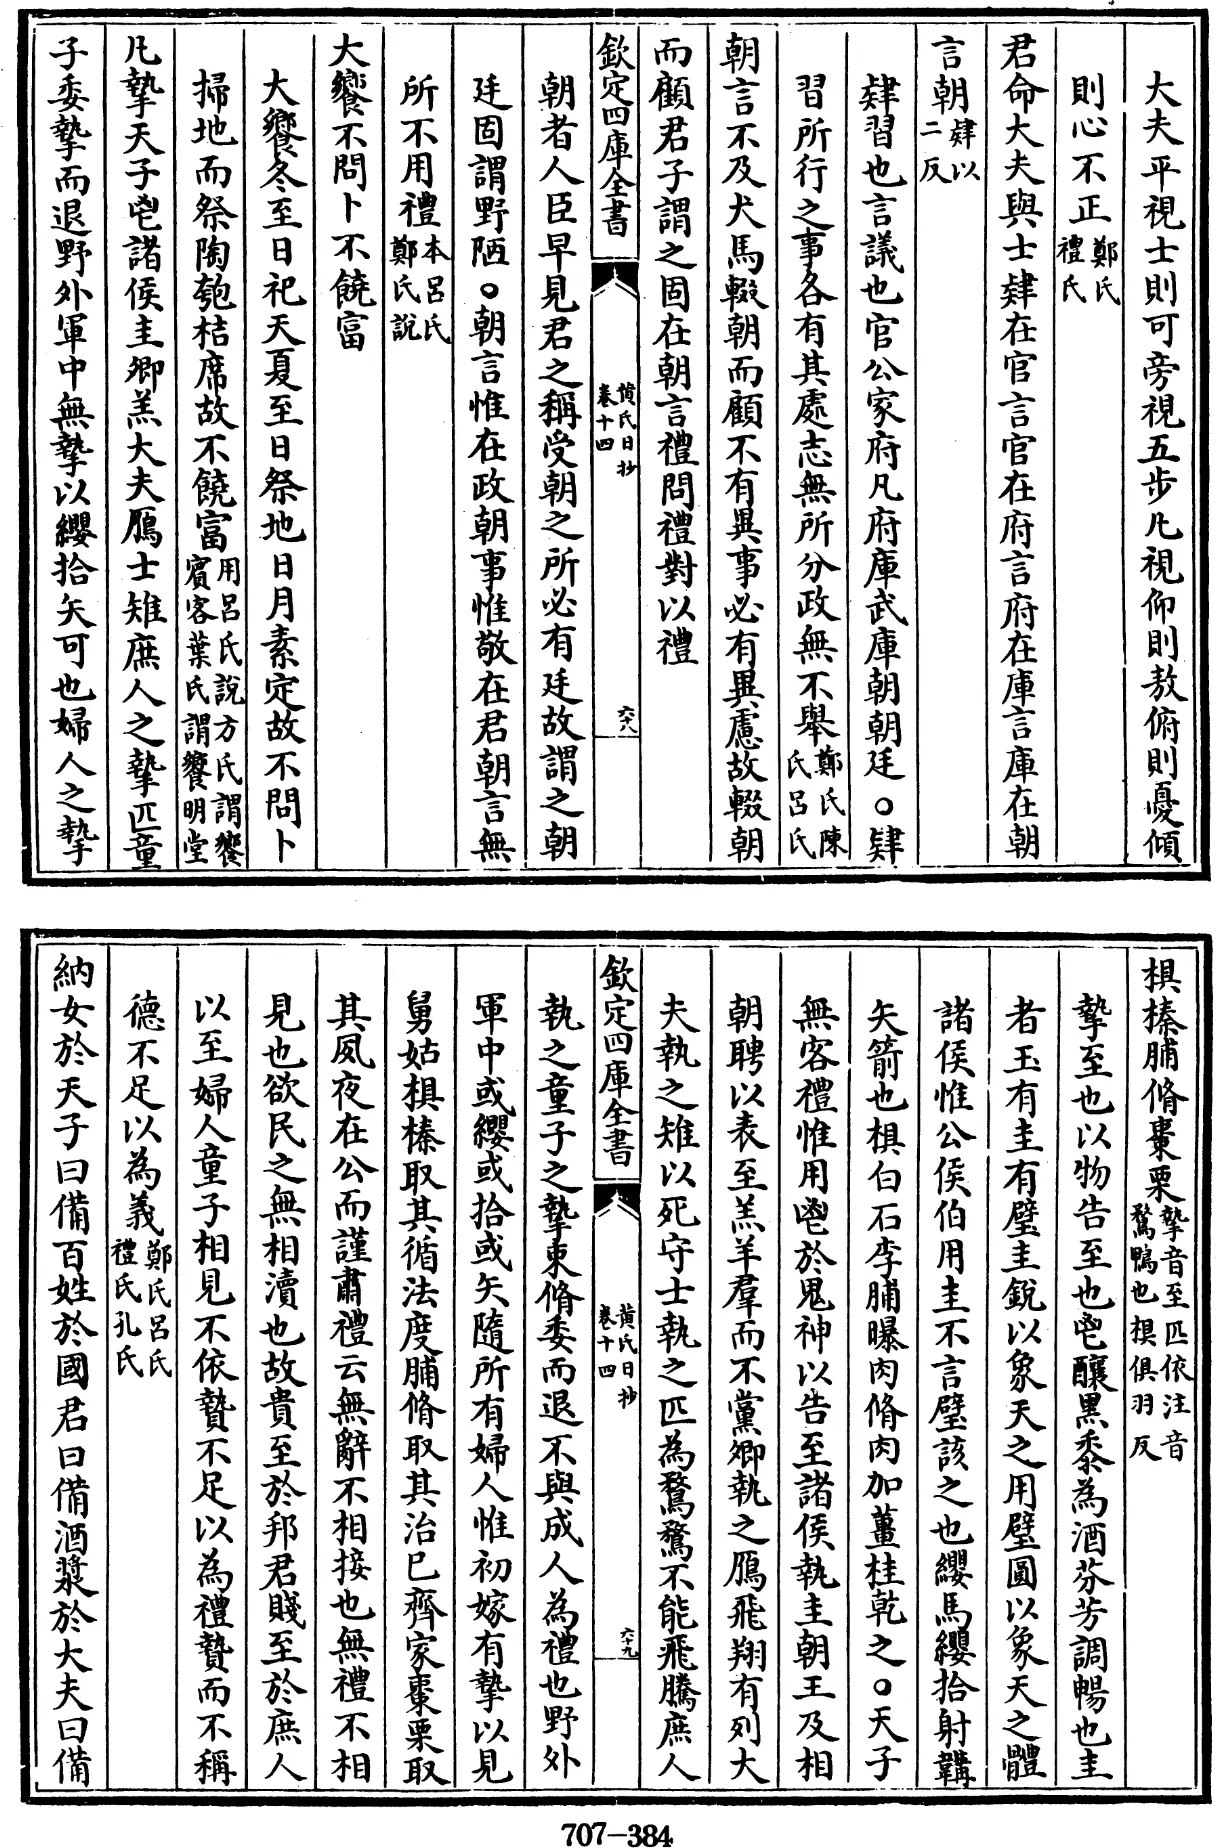 大夫平視士則可旁視五步凡視仰則敖俯則憂傾
則心不正鄭氏禮氏
君命大夫與士肄在官言官在府言府在庫言庫在朝
言朝肄以二反
肄習也言議也官公家府凡府庫武庫朝朝廷○肄
習所行之事各有其處志無所分政無不舉鄭氏陳氏呂氏
朝言不及犬馬輟朝而顧不有異事必有異慮故輟朝
而顧君子謂之固在朝言禮問禮對以禮
欽定四庫全書
黄氏日抄
卷十四
六十八
朝者人臣早見君之稱受朝之所必有廷故謂之朝
廷固謂野陋○朝言惟在政朝事惟敬在君朝言無
所不用禮本呂氏鄭氏說
大饗不問卜不饒富
大饗冬至日祀天夏至日祭地日月素定故不問卜
掃地而祭陶匏桔席故不饒富用呂氏說方氏謂饗賓客葉氏謂饗明堂
凡摯天子鬯諸侯圭卿羔大夫鴈士雉庶人之摯匹童
子委摯而退野外軍中無摯以纓拾矢可也婦人之摯
椇榛脯脩棗栗摯音至匹依注音鶩鴨也椇俱羽反
摯至也以物告至也鬯釀黑黍為酒芬芳調暢也圭
者玉有圭有璧圭銳以象天之用璧圓以象天之體
諸侯惟公侯伯用圭不言璧該之也纓馬纓拾射韝
矢箭也椇白石李脯曝肉脩肉加薑桂乾之○天子
無客禮惟用鬯於鬼神以告至諸侯執圭朝王及相
朝聘以表至羔羊羣而不黨卿執之鴈飛翔有列大
夫執之雉以死守士執之匹為鶩鶩不能飛騰庶人
欽定四庫全書
黄氏日抄
卷十四
六十九
執之童子之摯束脩委而退不與成人為禮也野外
軍中或纓或拾或矢隨所有婦人惟初嫁有摯以見
舅姑椇榛取其循法度脯脩取其治己齊家棗栗取
其夙夜在公而謹肅禮云無辭不相接也無禮不相
見也欲民之無相瀆也故貴至於邦君賤至於庶人
以至婦人童子相見不依贄不足以為禮贄而不稱
德不足以為義鄭氏呂氏禮氏孔氏
納女於天子曰備百姓於國君曰備酒漿於大夫曰備
707-384